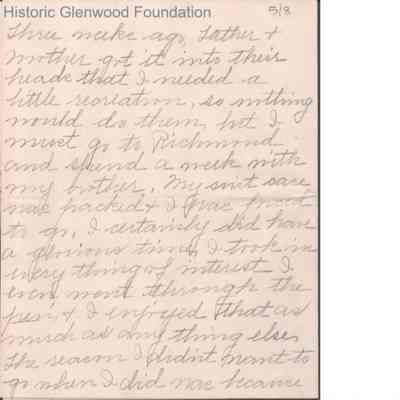 Historic Glenwood Foundation
5/8
Three weeks ago, Father +
Mother got it into their
heads that I needed a
little recriation, so nothing
would do them, but I
must go to Richmond
and spend a week with
my brother. My suit case
was packed + I was forced
to go, I certainly did have
a glorious time, I took in
every thing of interest I
even went through the
pen, + I enjoyed that as
much as any thing else,
The reason I didn't want to
go when I did was because